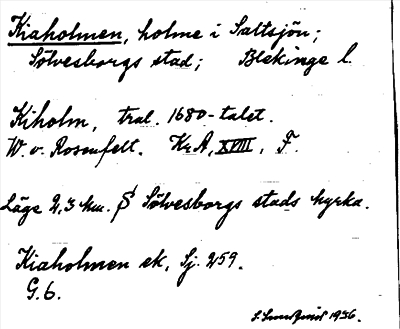 Kiaholmen, holme i Saltsjön;
Sölvesborgs stad; Blekinge l.
Kiholm, tral. 1680-talet.
W. v. Rosenfelt. KrA, XVIII, F.
Läge 2,3 km. S Sölvesborgs stads kyrka.
Kiaholmen ek, Sj. 259.
G.6.
1936.